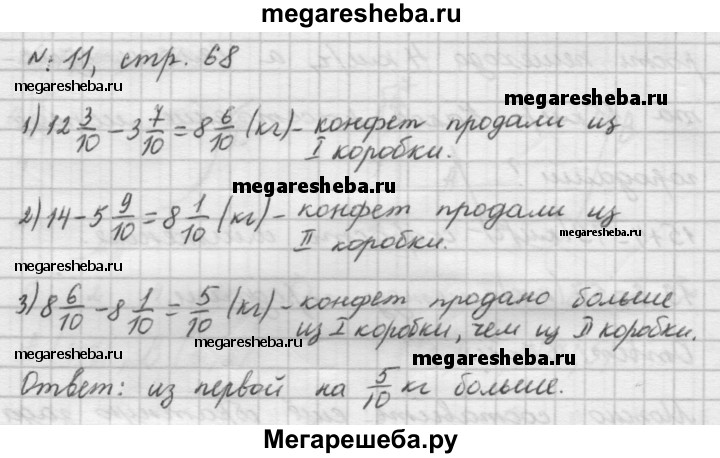 megaresheba.ru
N: 11, стр. 68
megaresheba.ru
megaresheba.ru
1) 12 3/10 - 3 7/10 = 8 6/10 (кг) - конфет продали из
I коробки.
megaresheba.ru
2) 14 - 5 9/10 = 8 1/10 (кг) - конфет продали из
II коробки.
megaresheba.ru
megaresheba.ru
3) 8 6/10 - 8 1/10 = 5/10 (кг) - конфет продано больше
из I коробки, чем из II коробки.
megaresheba.ru
megaresheba.ru
megaresheba.ru
Ответ: из первой на 5/10 кг больше.
megaresheba.ru
megaresheba.ru
Мегарешеба.ру